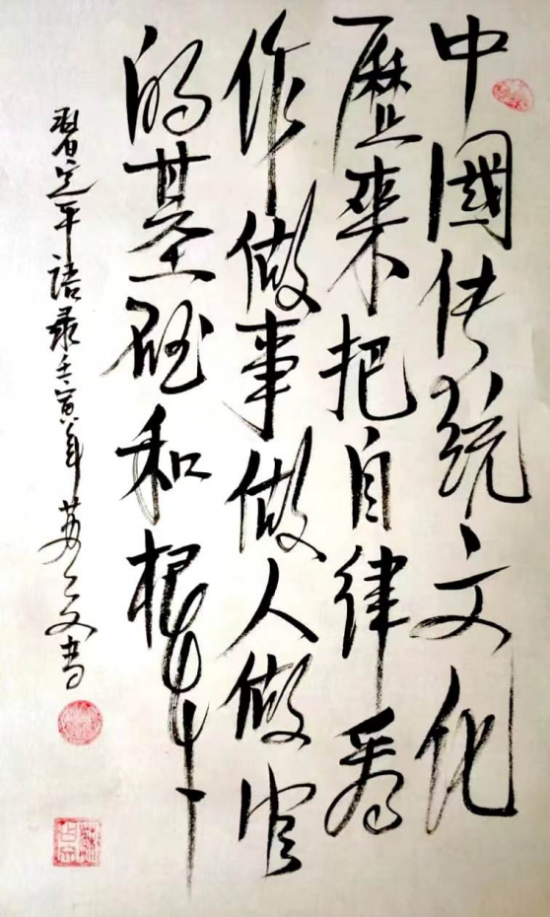 中國传统文化
歷來把自律看
作做事做人做官
的基础和根本
習近平语录壬寅年苏文书